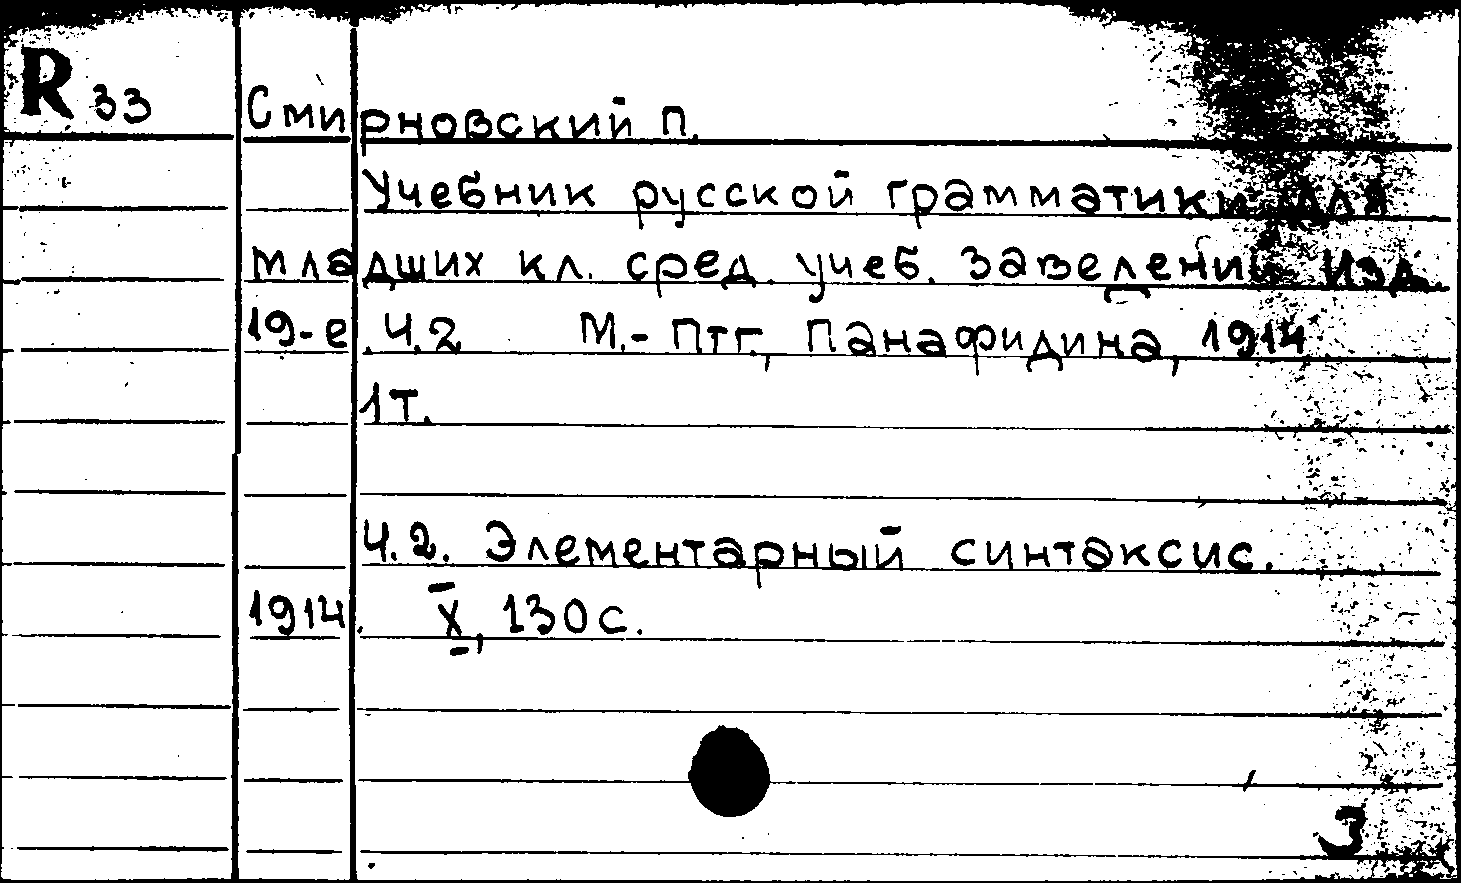 R 33 Смирновский П.
Учебник русской грамматики для
младших кл. сред. учеб. заведений Изд.
19-е. Ч.2 М.- Птг., Панафидина, 1914
1 т.
Ч.2. Элементарный синтаксис.
1914. X, 130 с.
3